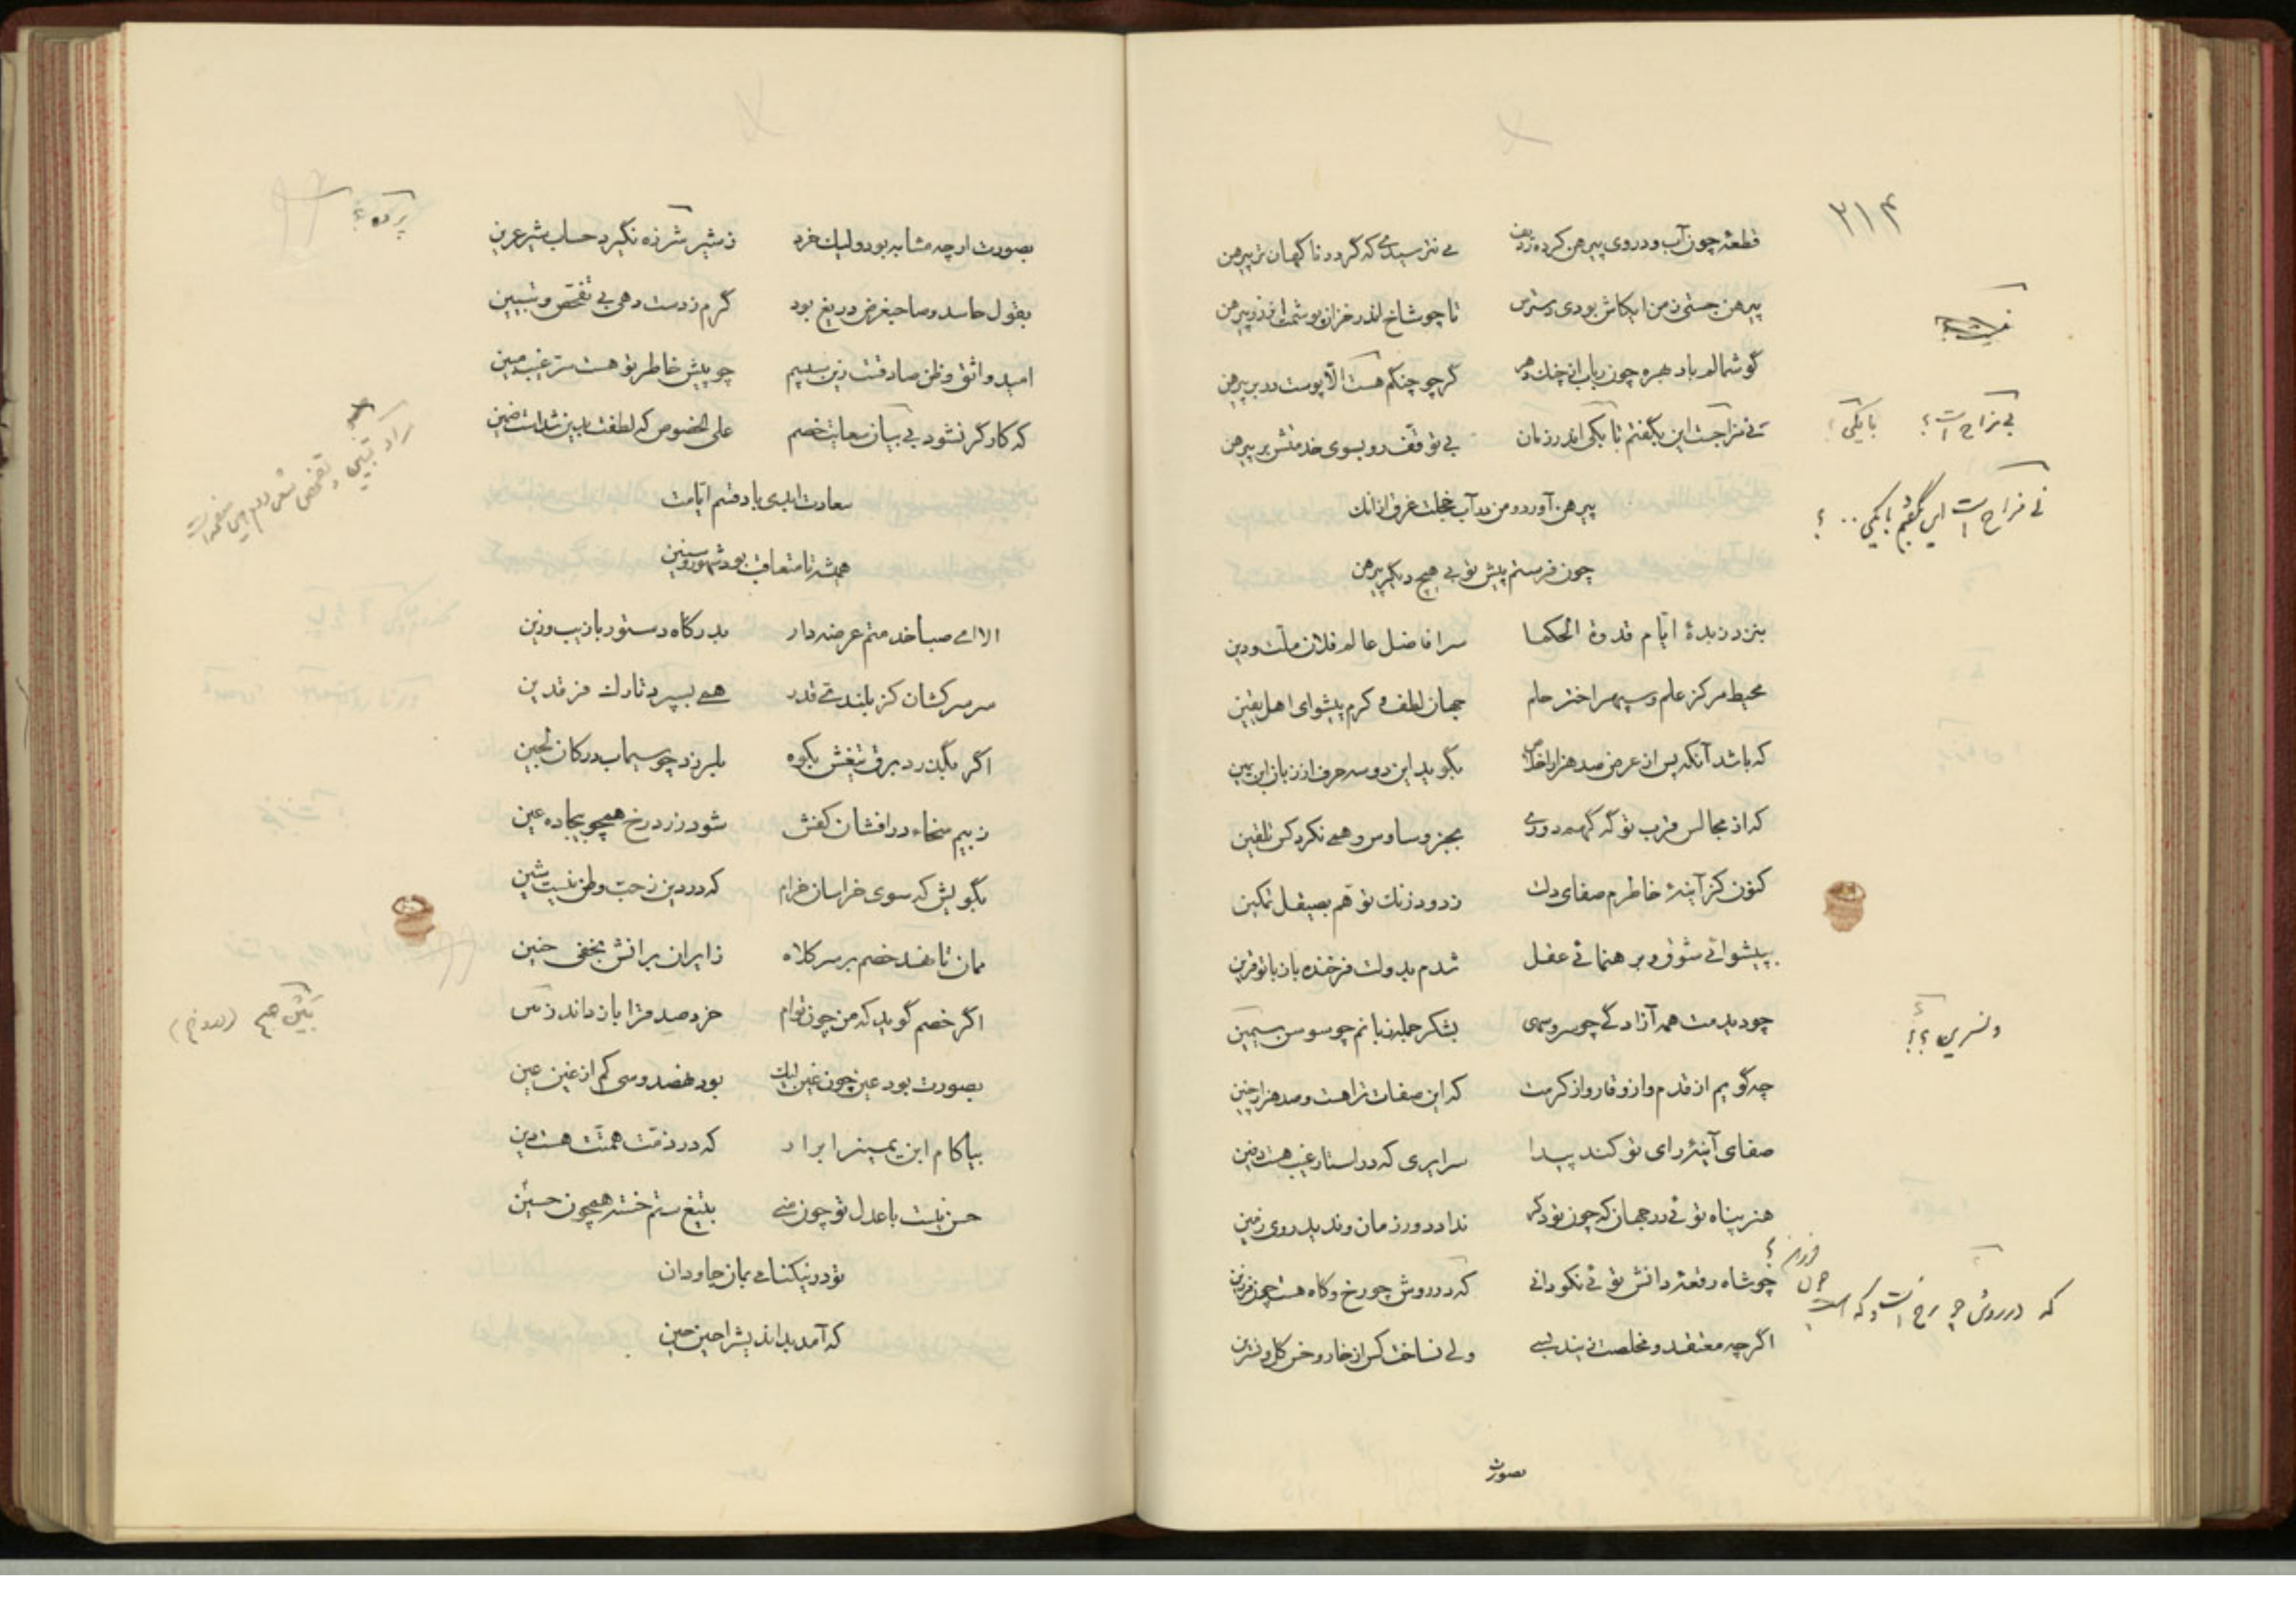 ۲۱۴
قطعهٔ چون آب و در وی پیرهن کرده ردیف می نترسیدی که گردد ناگهان تر پیرهن
پیرهن جستی ز من ایکاش بودی دسترس تا چو شاخ اندر خزان پوشمت از زر پیرهن
گوشمالم باد هبره چون رباب از چنک دهر گرچو چنکم هست الّا پوست در بر پیرهن
نی مزاجت این بگفتم تا یکی اندر زمان بی توقّف رو بسوی خدمتش بر پیرهن
پیرهن آورد و من در آب خجلت غرق از انک
چون فرستم پیش تو بی هیچ دیگر پیرهن
بنزد زبدهٔ ایام قدوة الحکما سر افاضل عالم فلان ملّت و دین
محیط مرکز علم و سپهر اختر حلم جهان لطف و کرم پیشوای اهل یقین
که باشد آنکه پس از عرض صد هزار اخلاص بگوید این دو سه حرف از زبان ابن یمین
که از مجالس قرب تو گه گهم دوری بجز وساوس وهمی نکرد کس تلقین
کنون کز آینهٔ خاطرم صفای دلت زدود زنک توهّم بصیقل تمکین
بپیشوائی شوق و برهنمائی عقل شدم بدولت فرخنده باز با تو قرین
چو دیدمت همه آزادگی چو سرو سهی بشکر جمله زبانم چو سوسن سیمین
چه گویم از قدم و از وقار و از کرمت که این صفات تراهست و صد هزار چنین
صفای آینهٔ رای تو کند پیدا سرایری که در استار غیب هست دفین
هنر پناه توئی در جهان که چون تو دکر ندارد دور زمان و ندید روی زمین
چو شاه رقعهٔ دانش توئی نکو دانی که در روش چو رخ و کاه هست چون فرزین
اگرچه معتقد و مخلصت نیند بسی ولی نساخت کس از خار و خس کل و نسرین
بصورت
بی مزاج است؟ با یکی؟
نی مزاج است این گفتم با یکی . . ؟
و نسرین ؟!
که در روش چو رخ است و که است چون فرزین؟
بصورت ارچه مشابه بود ولیک خرد ز شیر شرزه نگیرد حساب شیر عرین
بقول حاسد و صاحبغرض دریغ بود گرم ز دست دهی بی تفحّص و تبیین
امید واثق و ظن صادقست زین سلیم چو پیش خاطر تو هست سرّ غیب مبین
که کارگر نشود بی بیان سعایت خصم علی الخصوص که لطفت بدین شدست ضمین
سعادت ابدی باد قسم ایّامت
همیشه تا متعاقب بود شهور و سنین
الا ای صبا خدمتم عرضه دار بدرگاه دستور با زیب و زین
سر سرکشان کز بلندیّ قدر همی بسپرد تارک فرقدین
اگر بگذرد برق تیغش بکوه بلرزد چو سیماب در کان لجین
ز بیم سخاء در افشان کفش شود زرد رخ همچو بیجاده عین
بگویش که سوی خراسان خرام که در دین ز حب وطن نیست شین
ممان تا نهد خصم بر سر کلاه ز ایران برانش بخفّی حنین
اگر خصم گوید که من چون توام خرد صد قرا باز ماند ز مین
بصورت بود عین چون غین لیک بود نهصد و سی کم از غین عین
بیا کام ابن یمین را برآر که در ذمّت همّتت هست دین
حسن نیست با عدل تو چون منی بتیغ ستم خسته همچون حسین
تو در نیکنامی بمان جاودان
که آمد بداندیش را حین حین